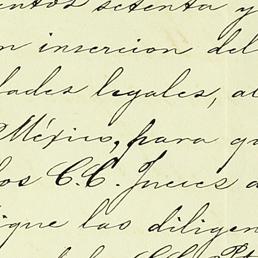 entos setenta y
n insercion del
dades legales, a
México, para q
los C.C. Jueces d
ique las diligen